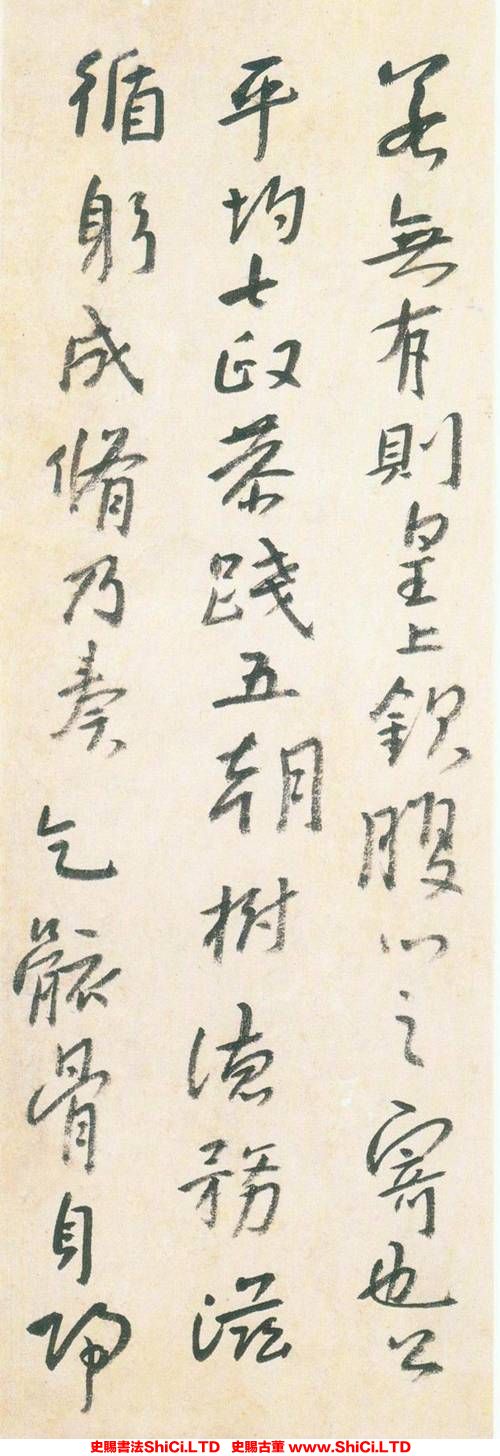 若無有則皇上欽腹心之寄也公
平均七政荼踐五朝樹德務滋
循躬成脩乃奏乞骸骨自歸
史賜書法ShiCi.LTD 史賜古董 www.ShiCi.LTD